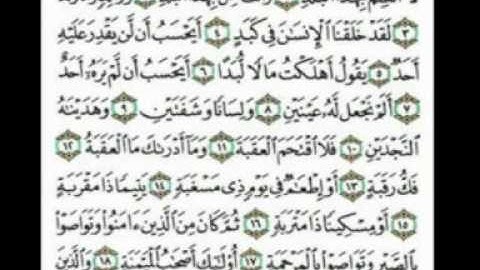 ٣ لَقَدْ خَلَقْنَا ٱلْإِنسَٰنَ فِى كَبَدٍ ٤ أَيَحْسَبُ أَن لَّن يَقْدِرَ عَلَيْهِ
أَحَدٌ ٥ يَقُولُ أَهْلَكْتُ مَالًا لُّبَدًا ٦ أَيَحْسَبُ أَن لَّمْ يَرَهُۥٓ أَحَدٌ
٧ أَلَمْ نَجْعَل لَّهُۥ عَيْنَيْنِ ٨ وَلِسَانًا وَشَفَتَيْنِ ٩ وَهَدَيْنَٰهُ
ٱلنَّجْدَيْنِ ١٠ فَلَا ٱقْتَحَمَ ٱلْعَقَبَةَ ١١ وَمَآ أَدْرَىٰكَ مَا ٱلْعَقَبَةُ ١٢
فَكُّ رَقَبَةٍ ١٣ أَوْ إِطْعَٰمٌ فِى يَوْمٍ ذِى مَسْغَبَةٍ ١٤ يَتِيمًا ذَا مَقْرَبَةٍ
١٥ أَوْ مِسْكِينًا ذَا مَتْرَبَةٍ ١٦ ثُمَّ كَانَ مِنَ ٱلَّذِينَ ءَامَنُوا۟ وَتَوَاصَوْا۟
بِٱلصَّبْرِ وَتَوَاصَوْا۟ بِٱلْمَرْحَمَةِ ١٧ أُو۟لَٰٓئِكَ أَصْحَٰبُ ٱلْمَيْمَنَةِ ١٨ وَٱلَّذِينَ